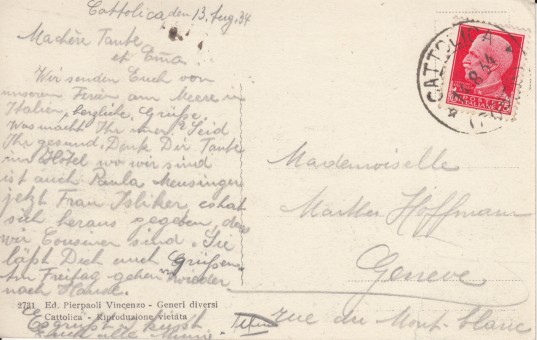 Cattolica den 13. Aug. 34
Ma chère Tante
et Erna
Wir senden Euch von
unseren Ferien am Meere in
Italien, herzliche Grüsse.
Was macht Ihr immer? Seid
Ihr gesund. Denk Dir Tante
im Hotel wo wir sind
ist auch Paula Meusinger
jetzt Frau Isliker, es hat
sich heraus gegeben, dass
wir Cousinen sind. Sie
läßt Dich auch Grüßen.
Am Freitag gehen wir wieder
nach Hause.
Es grüsst & küsst
Euch alle
CATTOLICA
Mademoiselle
Hoffmann
Genève
rue du Mont-blanc
2731 Ed. Pierpaoli Vincenzo - Generi diversi
Cattolica - Riproduzione vietata